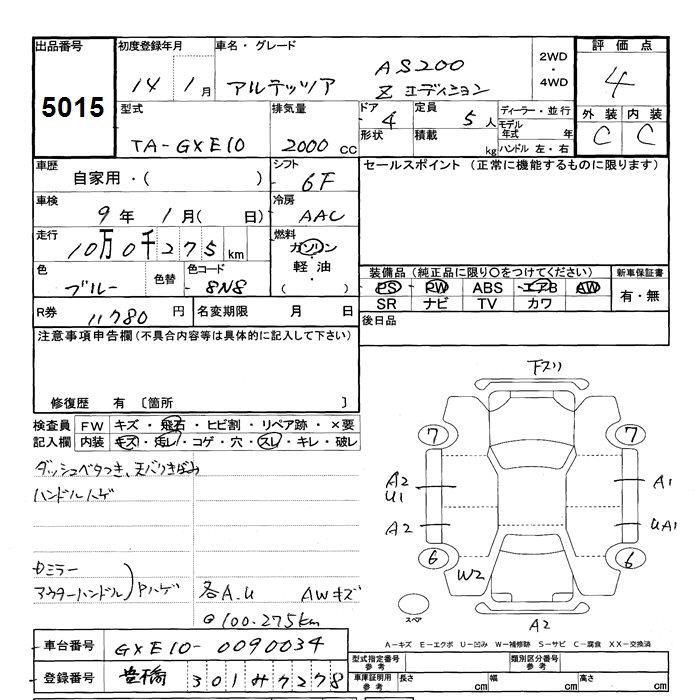 出品番号 初度登録年月 車名・グレード 評価点
5015 14 1月 アルテッツア AS200 Zエディション 2WD・4WD 4
型式 排気量 ドア 4 定員 5人 ディーラー・並行 外装 内装
TA-GXE10 2000cc 形状 積載 kg モデル年式 年 ハンドル 左・右 C C
車歴 シフト セールスポイント (正常に機能するものに限ります)
自家用・( ) 6F
車検 9年 1月( 日) 冷房 AAC
走行 10万0千275km 燃料 ガソリン
軽油
( )
色 ブルー 色替 色コード 8N8
装備品 (純正品に限り○をつけてください) 新車保証書
PS PW ABS エアB AW 有・無
SR ナビ TV カワ
R券 11780円 名変期限 月 日 後日品
注意事項申告欄(不具合内容等は具体的に記入して下さい)
修復歴 有 〔箇所 〕
検査員 FW キズ・飛石・ヒビ割・リペア跡・×要
記入欄 内装 キズ・汚レ・コゲ・穴・スレ・キレ・破レ
ダッシュベタつき、天バリきばみ
ハンドルハゲ
Dミラー
アウターハンドル)Pハゲ 各A.U AWキズ
@100.275km
下スリ
7 7
A2 A1
U1
A2 UA1
6 6
W2
スペア A2
A-キズ E-エクボ U-凹み W-補修跡 S-サビ C-腐食 XX-交換済
車台番号 GXE10-0090034 型式指定番号 参考 類別区分番号 参考
登録番号 豊橋 301 7278 車庫証明用 参考 長さ cm 幅 cm 高さ cm